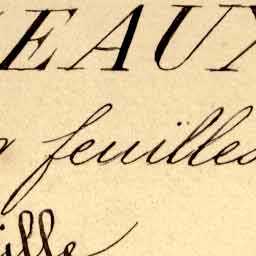 EAUX
feuilles
ille